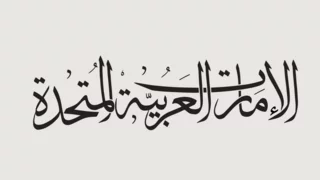 الإمارات العربيّة المُتحدة